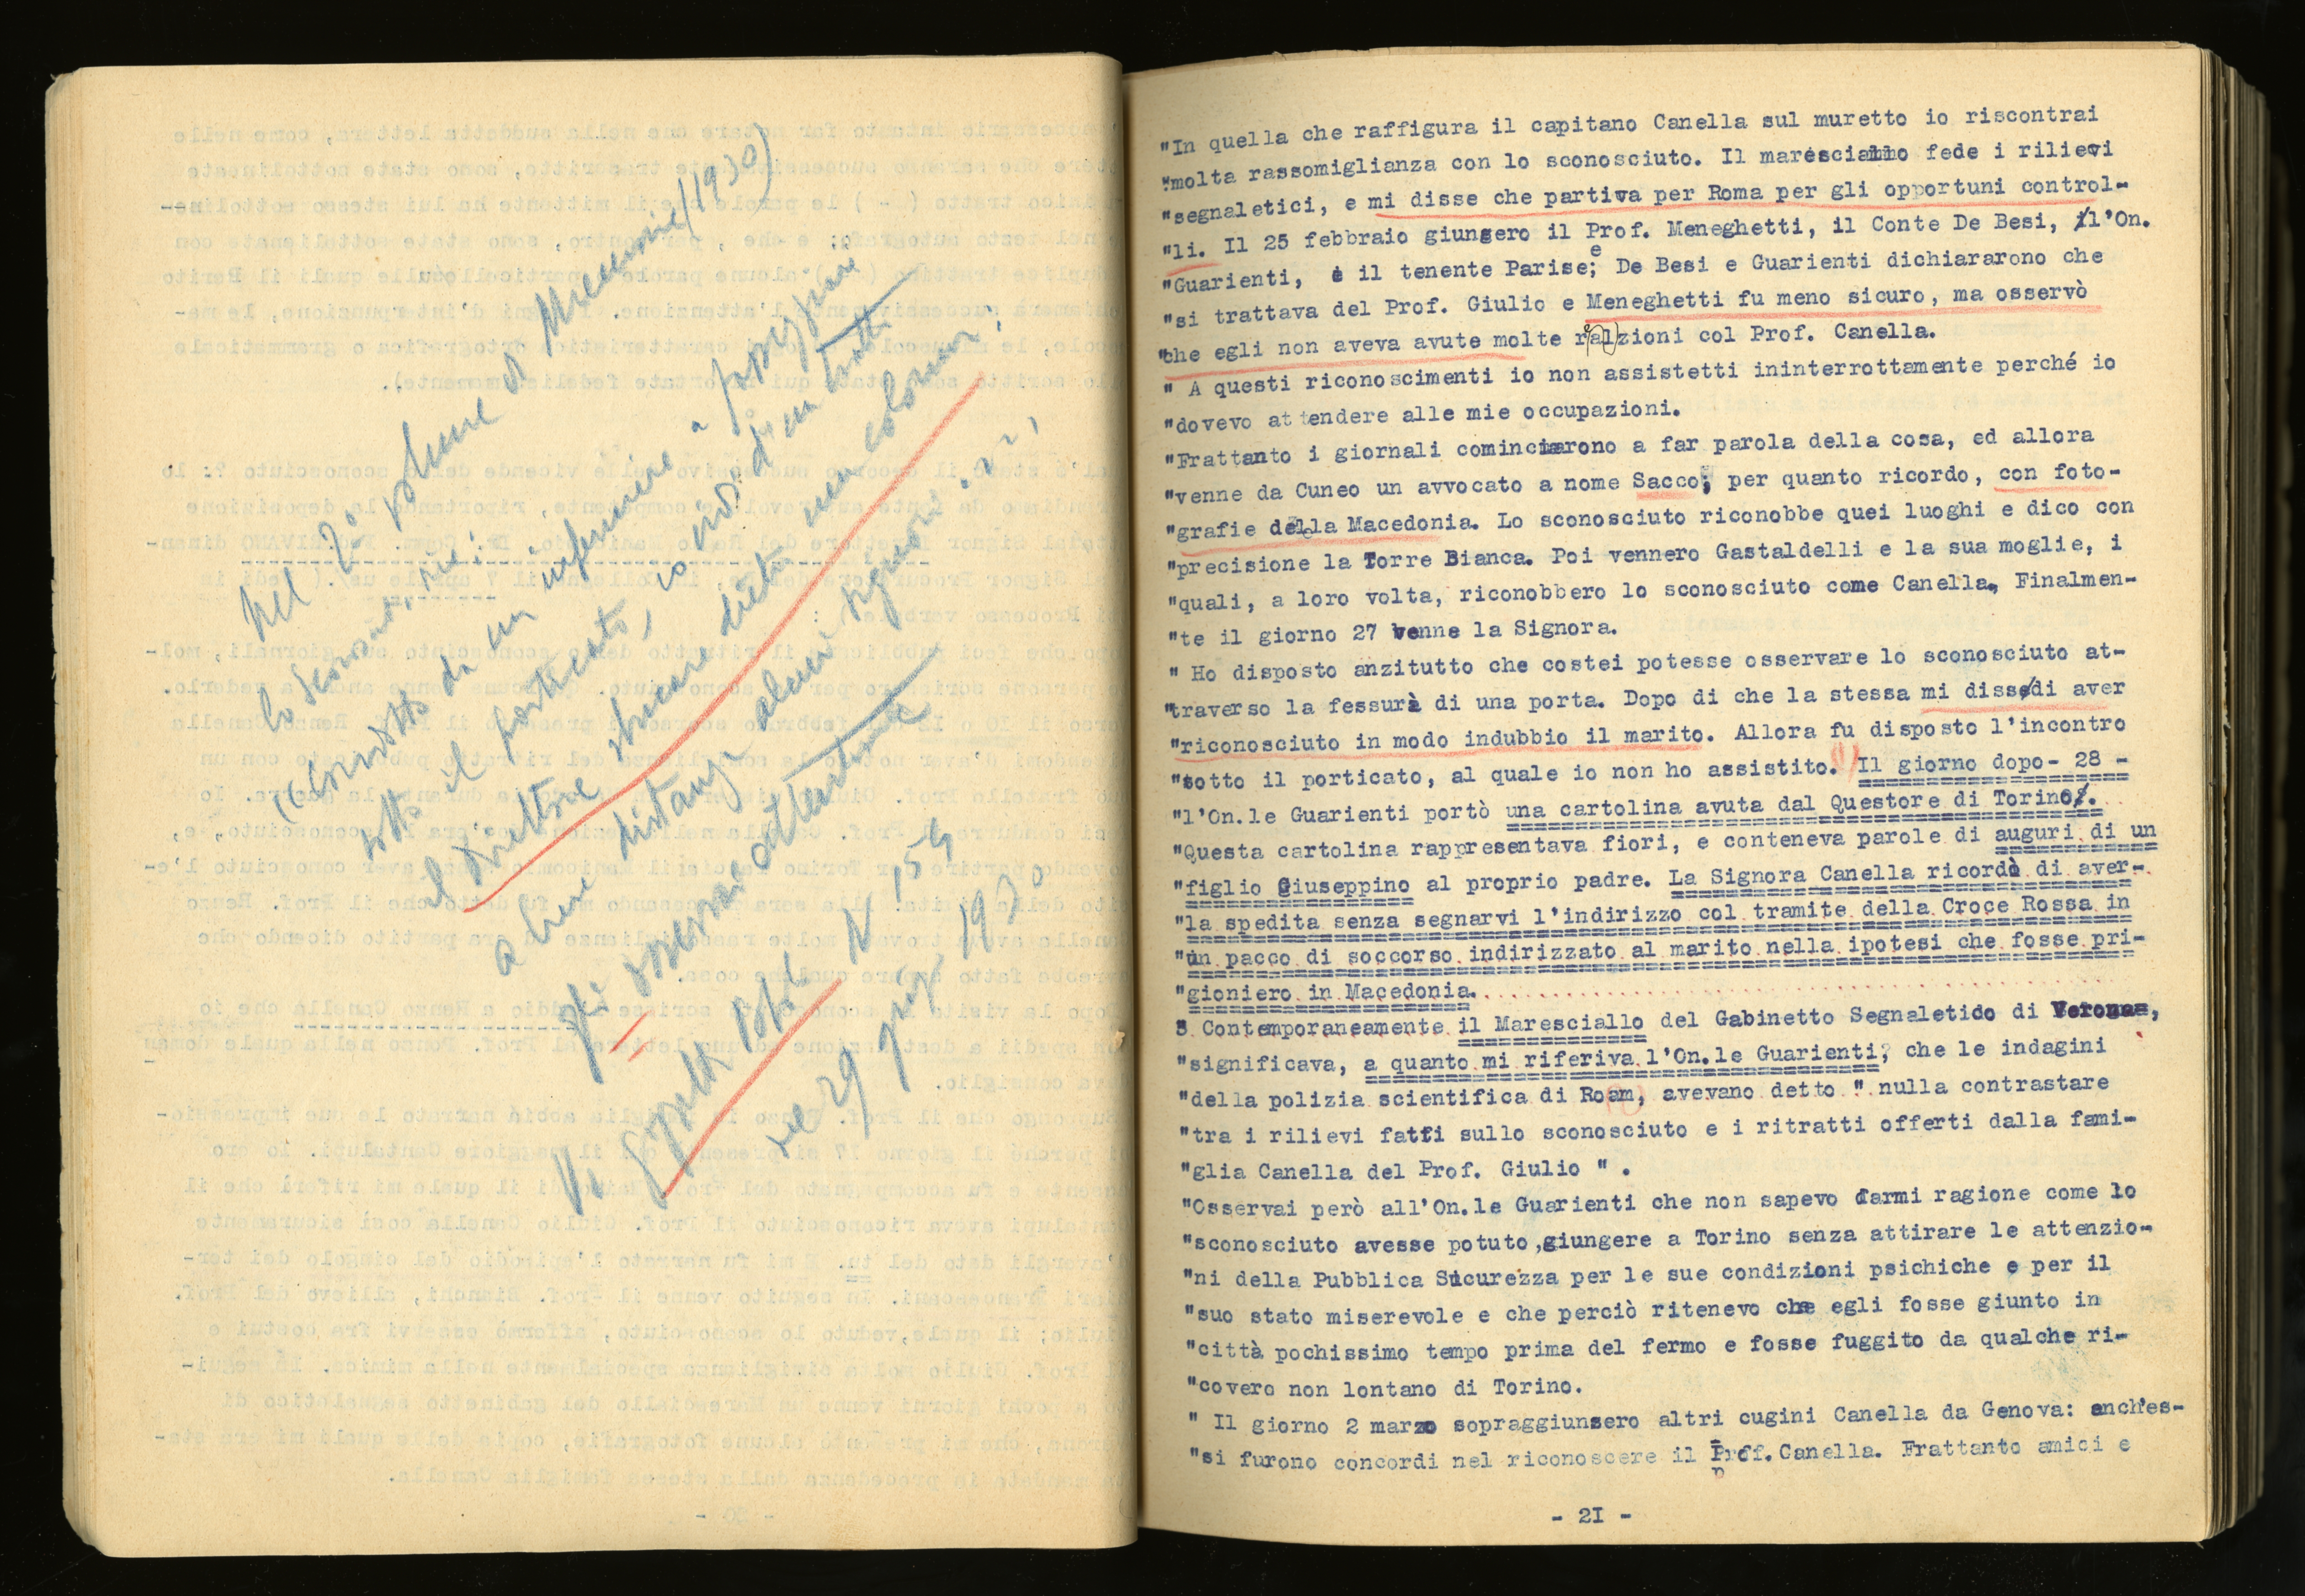 Nel 2° volume di Memorie (1930)
lo sconosciuto:
(condotto da un infermiere a passeggiare
sotto il porticato, io vidi d'un tratto
il Direttore sbucare dietro una colonna.
a breve distanza alcuni signori.
osservare attentamente
N 159
del 29 1930
"In quella che raffigura il capitano Canella sul muretto io riscontrai
"molta rassomiglianza con lo sconosciuto. Il maresciallo fede i rilievi
"segnaletici, e mi disse che partiva per Roma per gli opportuni control-
"li. Il 25 febbraio giunsero il Prof. Meneghetti, il Conte De Besi, l'On.
"Guarienti, e il tenente Parise; De Besi e Guarienti dichiararono che
"si trattava del Prof. Giulio e Meneghetti fu meno sicuro, ma osservò
"che egli non aveva avute molte relazioni col Prof. Canella.
" A questi riconoscimenti io non assistetti ininterrottamente perché io
"dovevo attendere alle mie occupazioni.
"Frattanto i giornali cominciarono a far parola della cosa, ed allora
"venne da Cuneo un avvocato a nome Sacco, per quanto ricordo, con foto-
"grafie della Macedonia. Lo sconosciuto riconobbe quei luoghi e dico con
"precisione la Torre Bianca. Poi vennero Gastaldelli e la sua moglie, i
"quali, a loro volta, riconobbero lo sconosciuto come Canella. Finalmen-
"te il giorno 27 venne la Signora.
" Ho disposto anzitutto che costei potesse osservare lo sconosciuto at-
"traverso la fessura di una porta. Dopo di che la stessa mi disse di aver
"riconosciuto in modo indubbio il marito. Allora fu disposto l'incontro
"sotto il porticato, al quale io non ho assistito. (1) Il giorno dopo- 28 -
"l'On.le Guarienti portò una cartolina avuta dal Questore di Torino.
"Questa cartolina rappresentava fiori, e conteneva parole di auguri di un
"figlio Giuseppino al proprio padre. La Signora Canella ricordò di aver-
"la spedita senza segnarvi l'indirizzo col tramite della Croce Rossa in
"un pacco di soccorso indirizzato al marito nella ipotesi che fosse pri-
"gioniero in Macedonia.
" Contemporaneamente il Maresciallo del Gabinetto Segnaletico di Verona,
"significava, a quanto mi riferiva l'On.le Guarienti, che le indagini
"della polizia scientifica di Roam, avevano detto " nulla contrastare
"tra i rilievi fatti sullo sconosciuto e i ritratti offerti dalla fami-
"glia Canella del Prof. Giulio " .
"Osservai però all'On.le Guarienti che non sapevo darmi ragione come lo
"sconosciuto avesse potuto,giungere a Torino senza attirare le attenzio-
"ni della Pubblica Sicurezza per le sue condizioni psichiche e per il
"suo stato miserevole e che perciò ritenevo che egli fosse giunto in
"città pochissimo tempo prima del fermo e fosse fuggito da qualche ri-
"covero non lontano di Torino.
" Il giorno 2 marzo sopraggiunsero altri cugini Canella da Genova: anch'es-
"si furono concordi nel riconoscere il Prof. Canella. Frattanto amici e
- 2I -